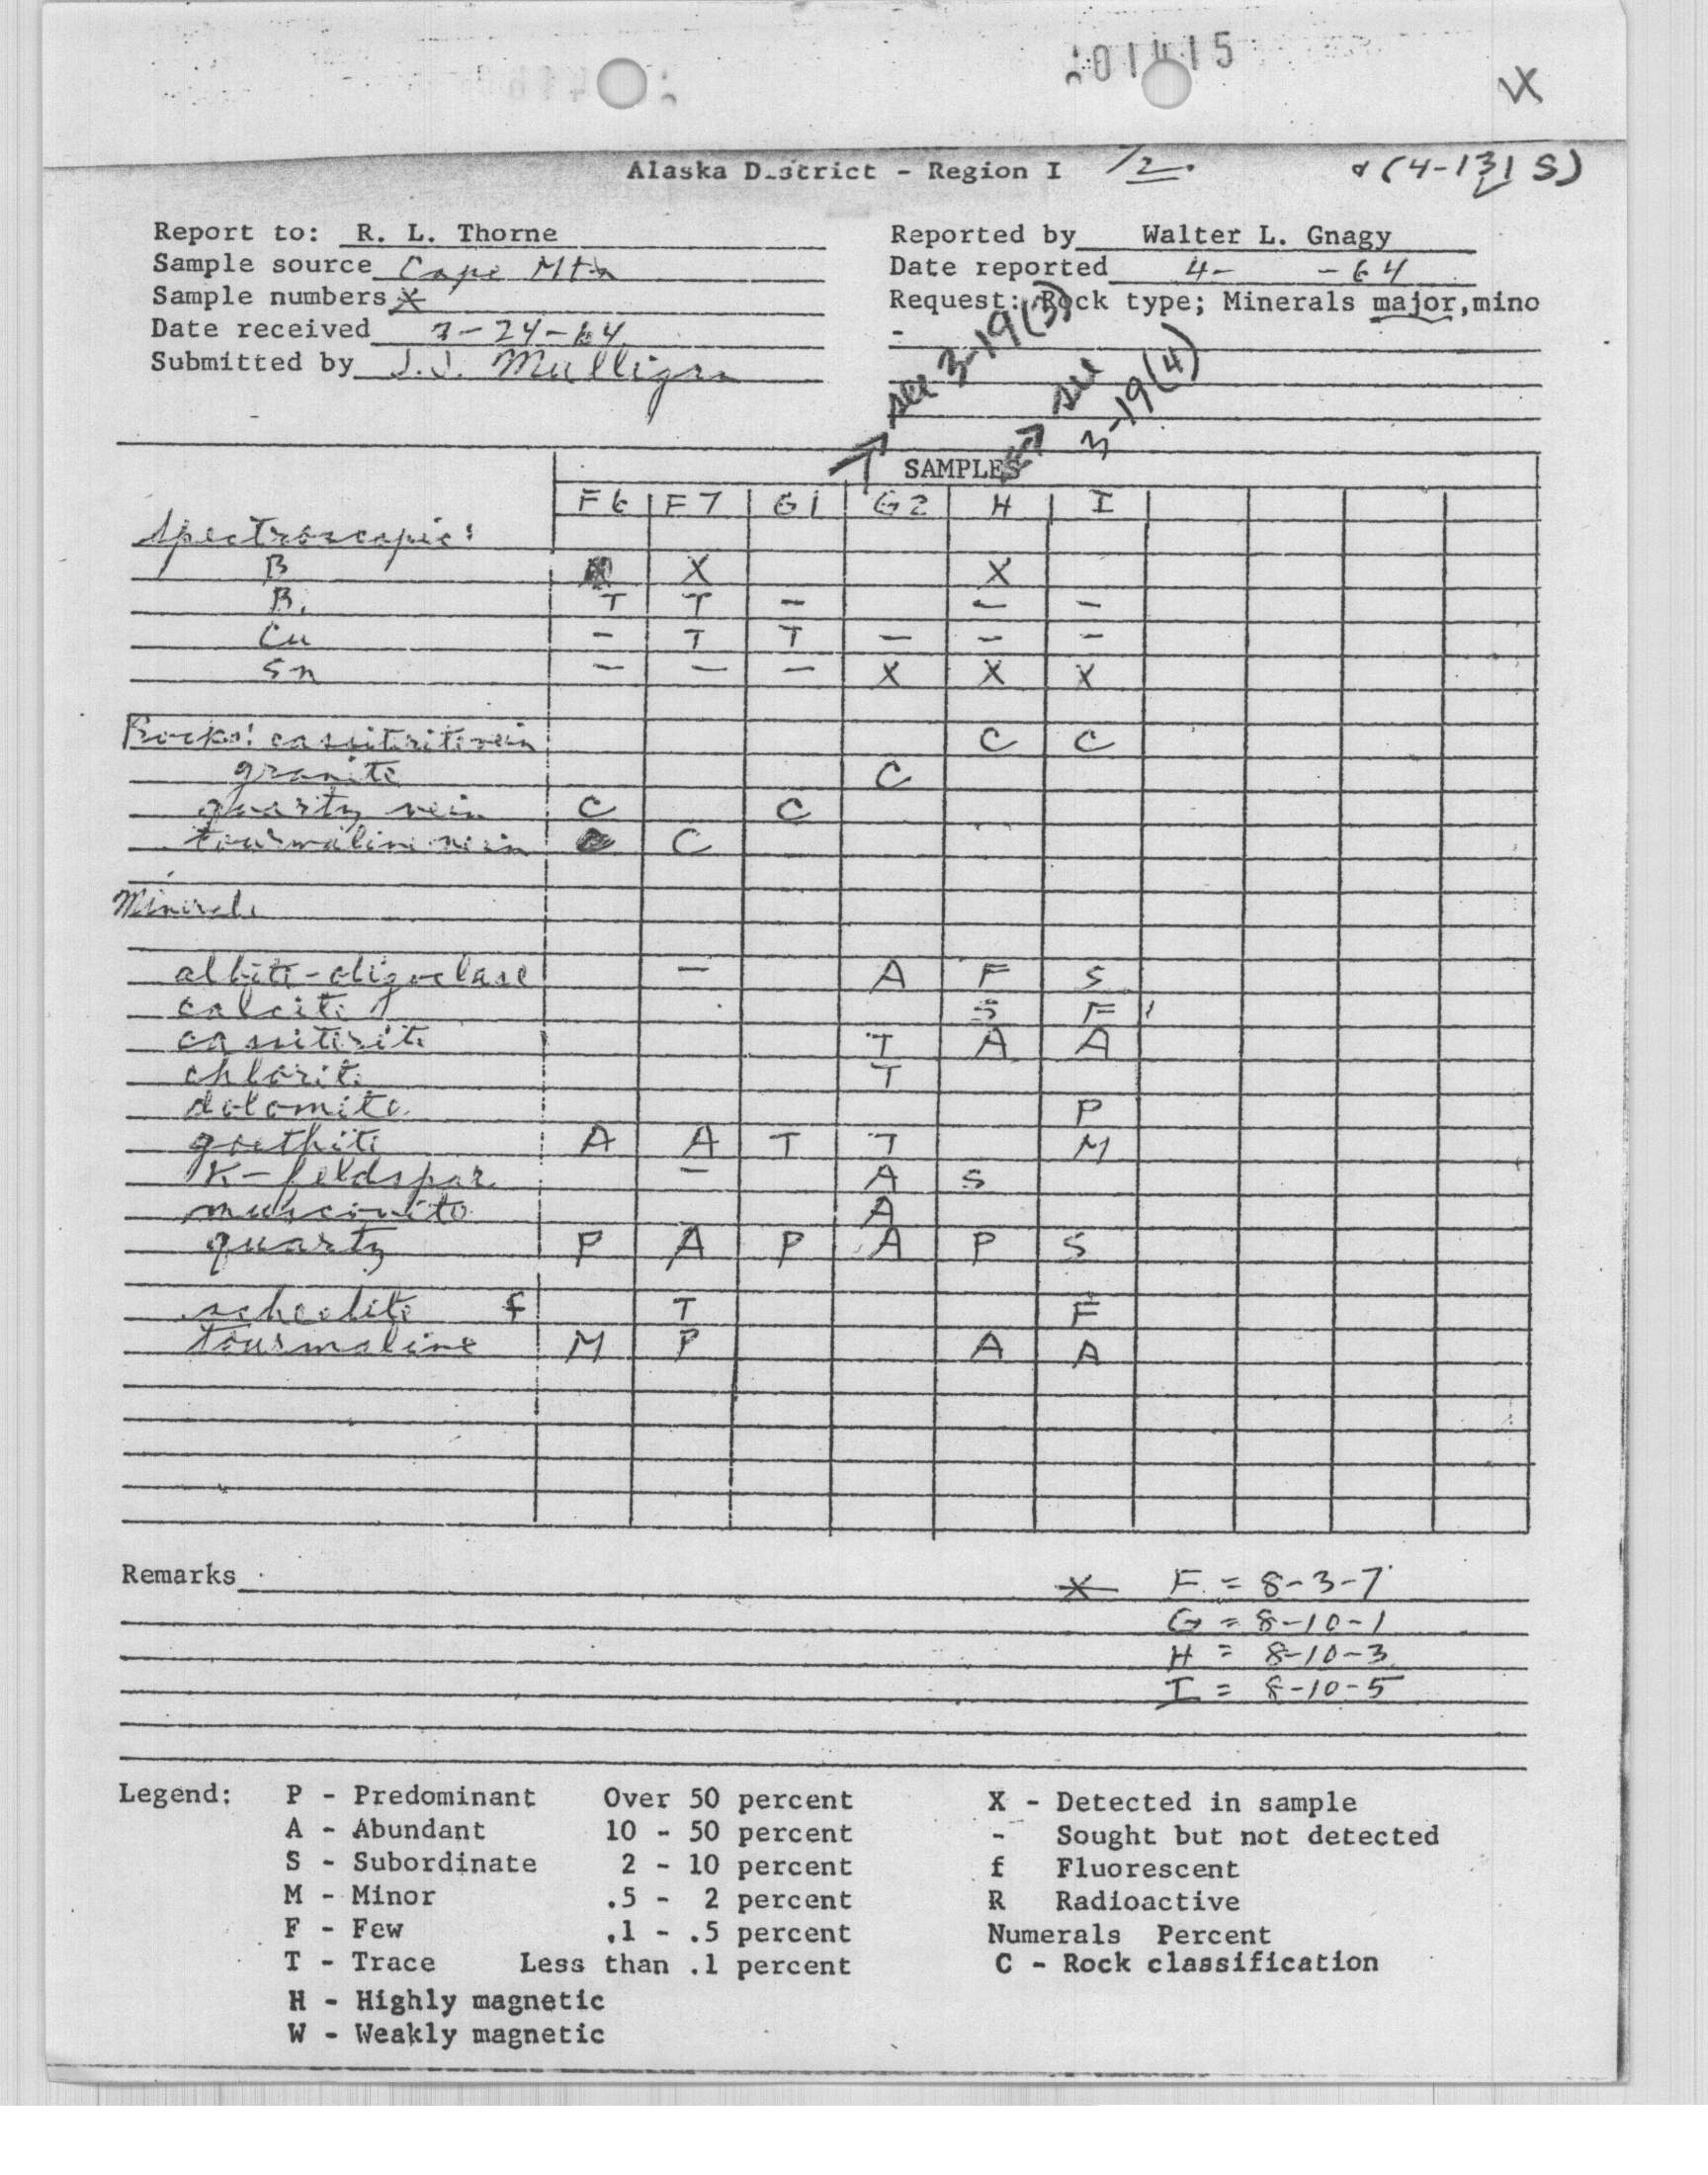 201415
X
Alaska District - Region I 1/2. (4-131 S)
Report to: R. L. Thorne
Reported by Walter L. Gnagy
Sample source Cape Mtn
Date reported 4- -64
Sample numbers X
Request: Rock type; Minerals major,mino
Date received 3-24-64
Submitted by J.J. Mulligan
see 3-19(3)
see 3-19(4)
SAMPLES
F6 F7 G1 G2 H I
Spectroscopic:
B X X
Bi T T - - -
Cu - T T - - -
Sn - - - X X X
Rocks: cassiterite vein C C
granite C
quartz vein C C
tourmaline vein C
Minerals
albite-oligoclase - A F S
calcite S F
cassiterite T A A
chlorite T
dolomite P
goethite A A T T M
K-feldspar - A S
muscovite A
quartz P A P A P S
scheelite f T F
tourmaline M P A A
Remarks X F = 8-3-7
G = 8-10-1
H = 8-10-3
I = 8-10-5
Legend: P - Predominant Over 50 percent X - Detected in sample
A - Abundant 10 - 50 percent - Sought but not detected
S - Subordinate 2 - 10 percent f Fluorescent
M - Minor .5 - 2 percent R Radioactive
F - Few .1 - .5 percent Numerals Percent
T - Trace Less than .1 percent C - Rock classification
H - Highly magnetic
W - Weakly magnetic